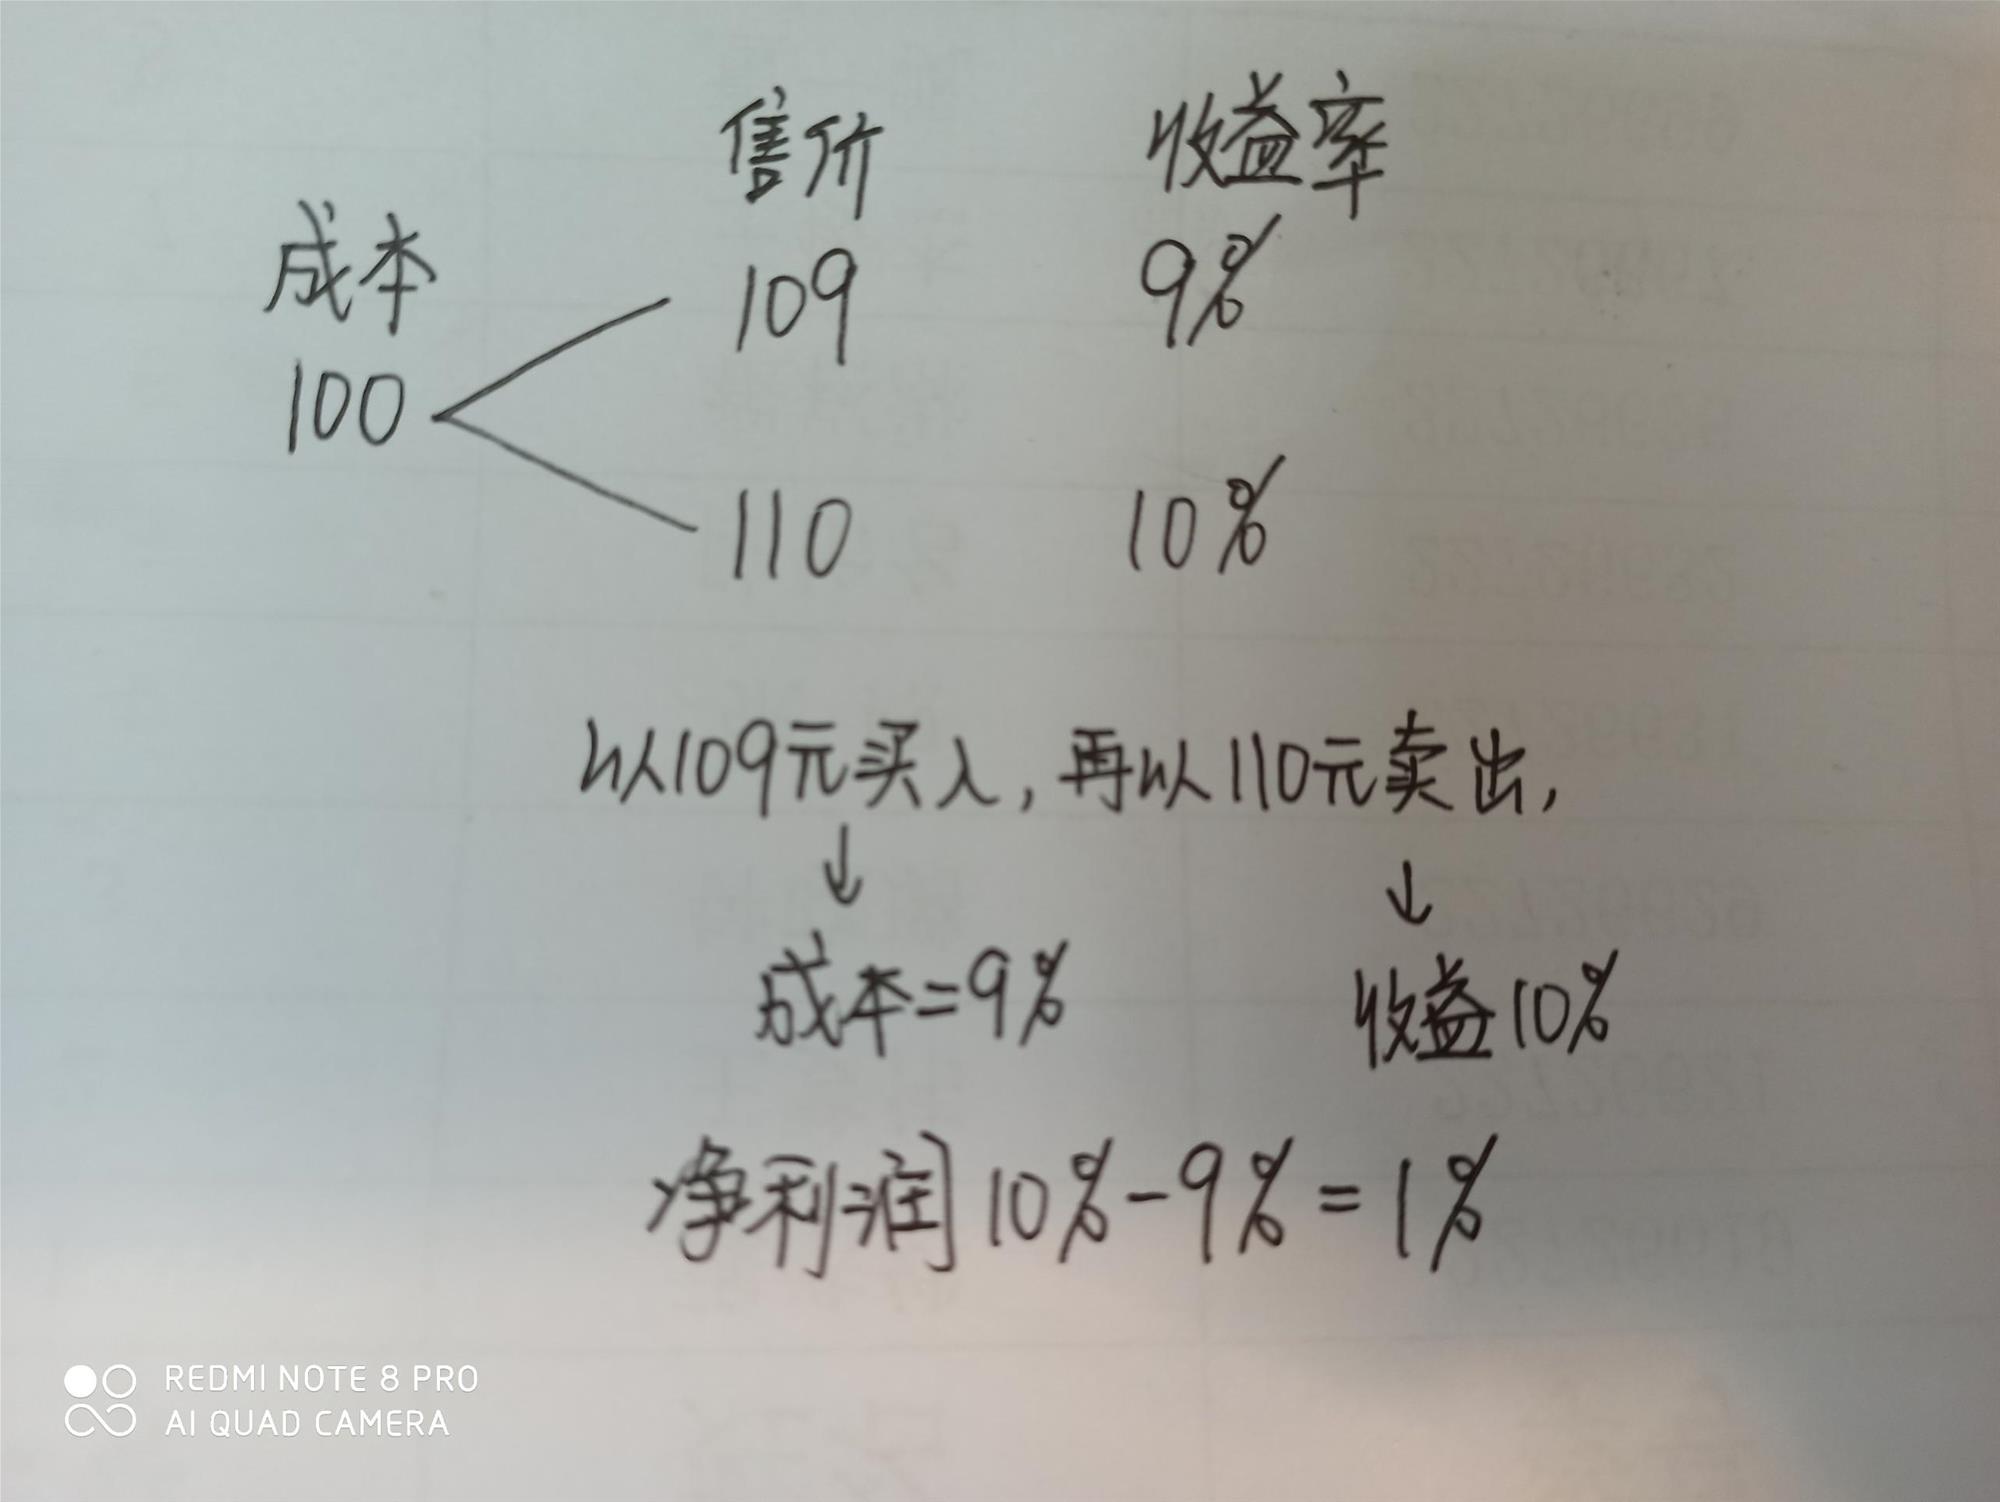 售价 收益率
成本 109 9%
100
110 10%
以109元买入,再以110元卖出,
↓ ↓
成本=9% 收益10%
净利润10%-9%=1%
REDMI NOTE 8 PRO
AI QUAD CAMERA